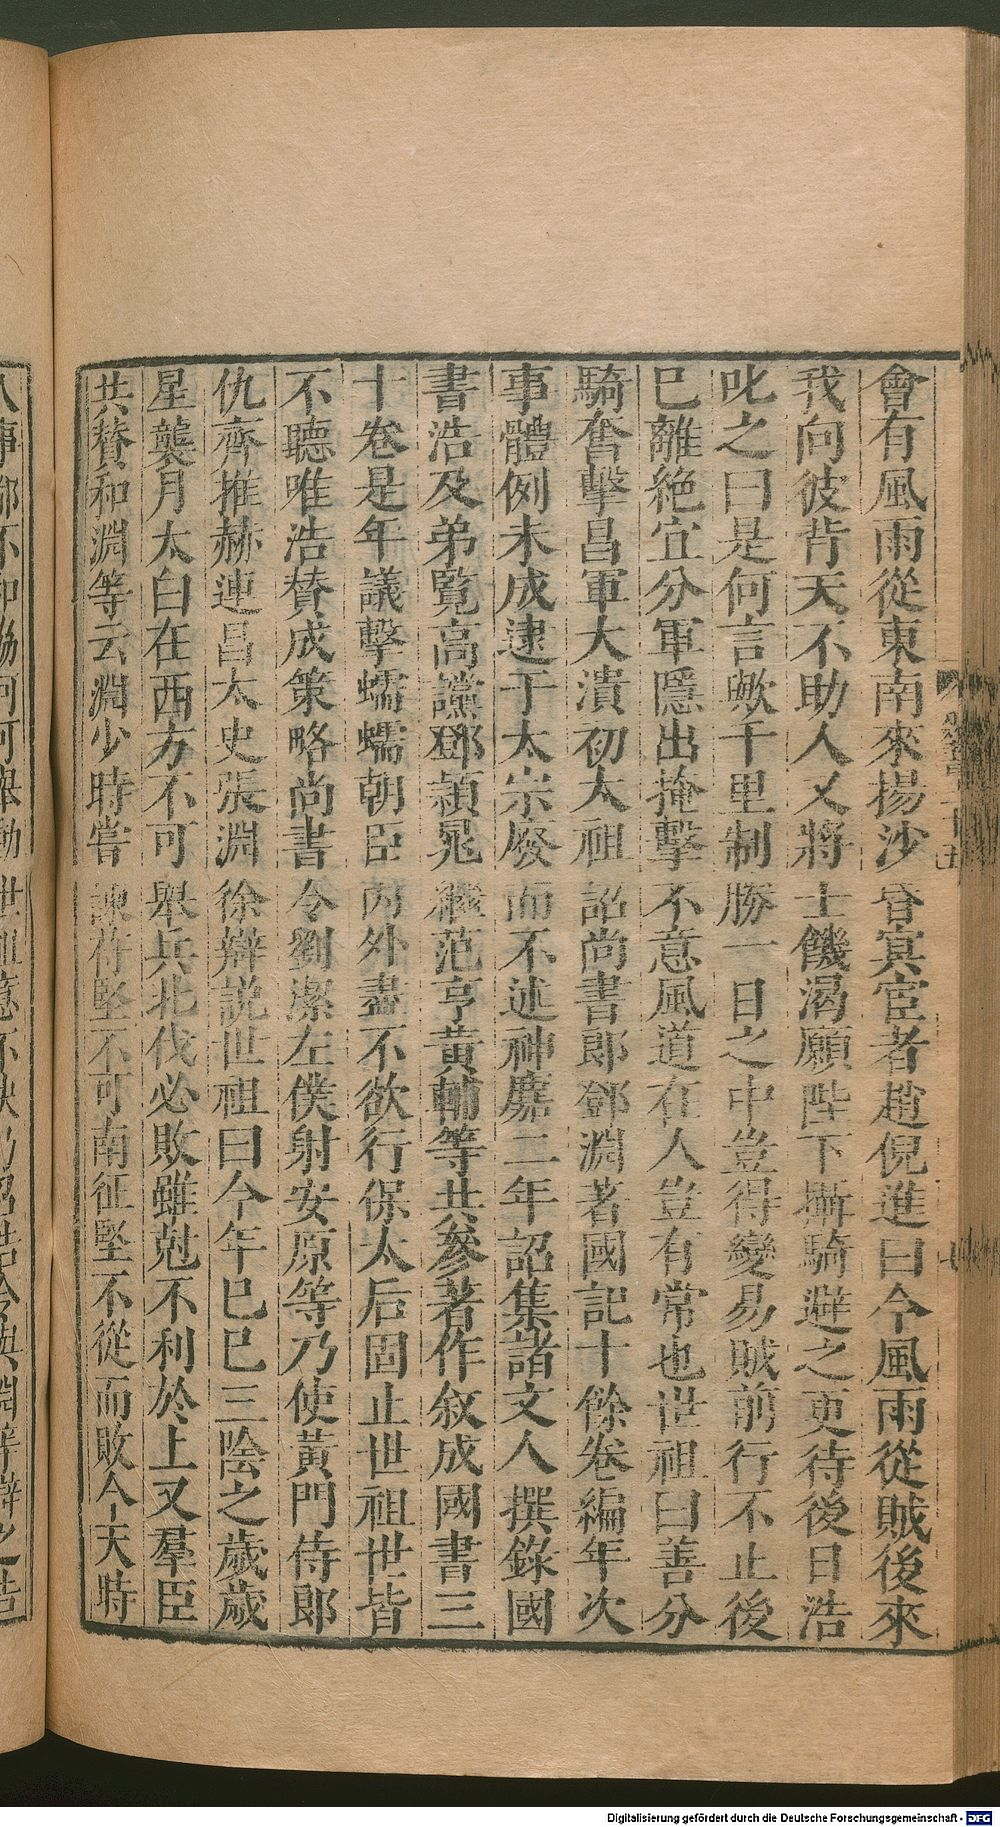 會有風雨從東南來揚沙昏冥宦者趙倪進曰今風雨從賊後來
我向彼背天不助人又將士饑渴願陛下攝騎避之更待後日浩
叱之曰是何言歟千里制勝一日之中豈得變易賊前行不止後
已離絶宜分軍隱出掩擊不意風道在人豈有常也世祖曰善分
騎奮擊昌軍大潰初太祖詔尚書郎鄧淵著國記十餘卷編年次
事體例未成逮于太宗廢而不述神䴥二年詔集諸文人撰錄國
書浩及弟覽高讜鄧穎晁繼范亨黃輔等共參著作敘成國書三
十卷是年議擊蠕蠕朝臣內外盡不欲行保太后固止世祖世皆
不聽唯浩賛成策略尚書令劉潔左僕射安原等乃使黃門侍郎
仇齊推赫連昌太史張淵徐辯説世祖曰今年巳巳三陰之歲歲
星襲月太白在西方不可舉兵北伐必敗雖尅不利於上又羣臣
共賛和淵等云淵少時嘗諫苻堅不可南征堅不從而敗今天時
Digitalisierung gefördert durch die Deutsche Forschungsgemeinschaft - DFG